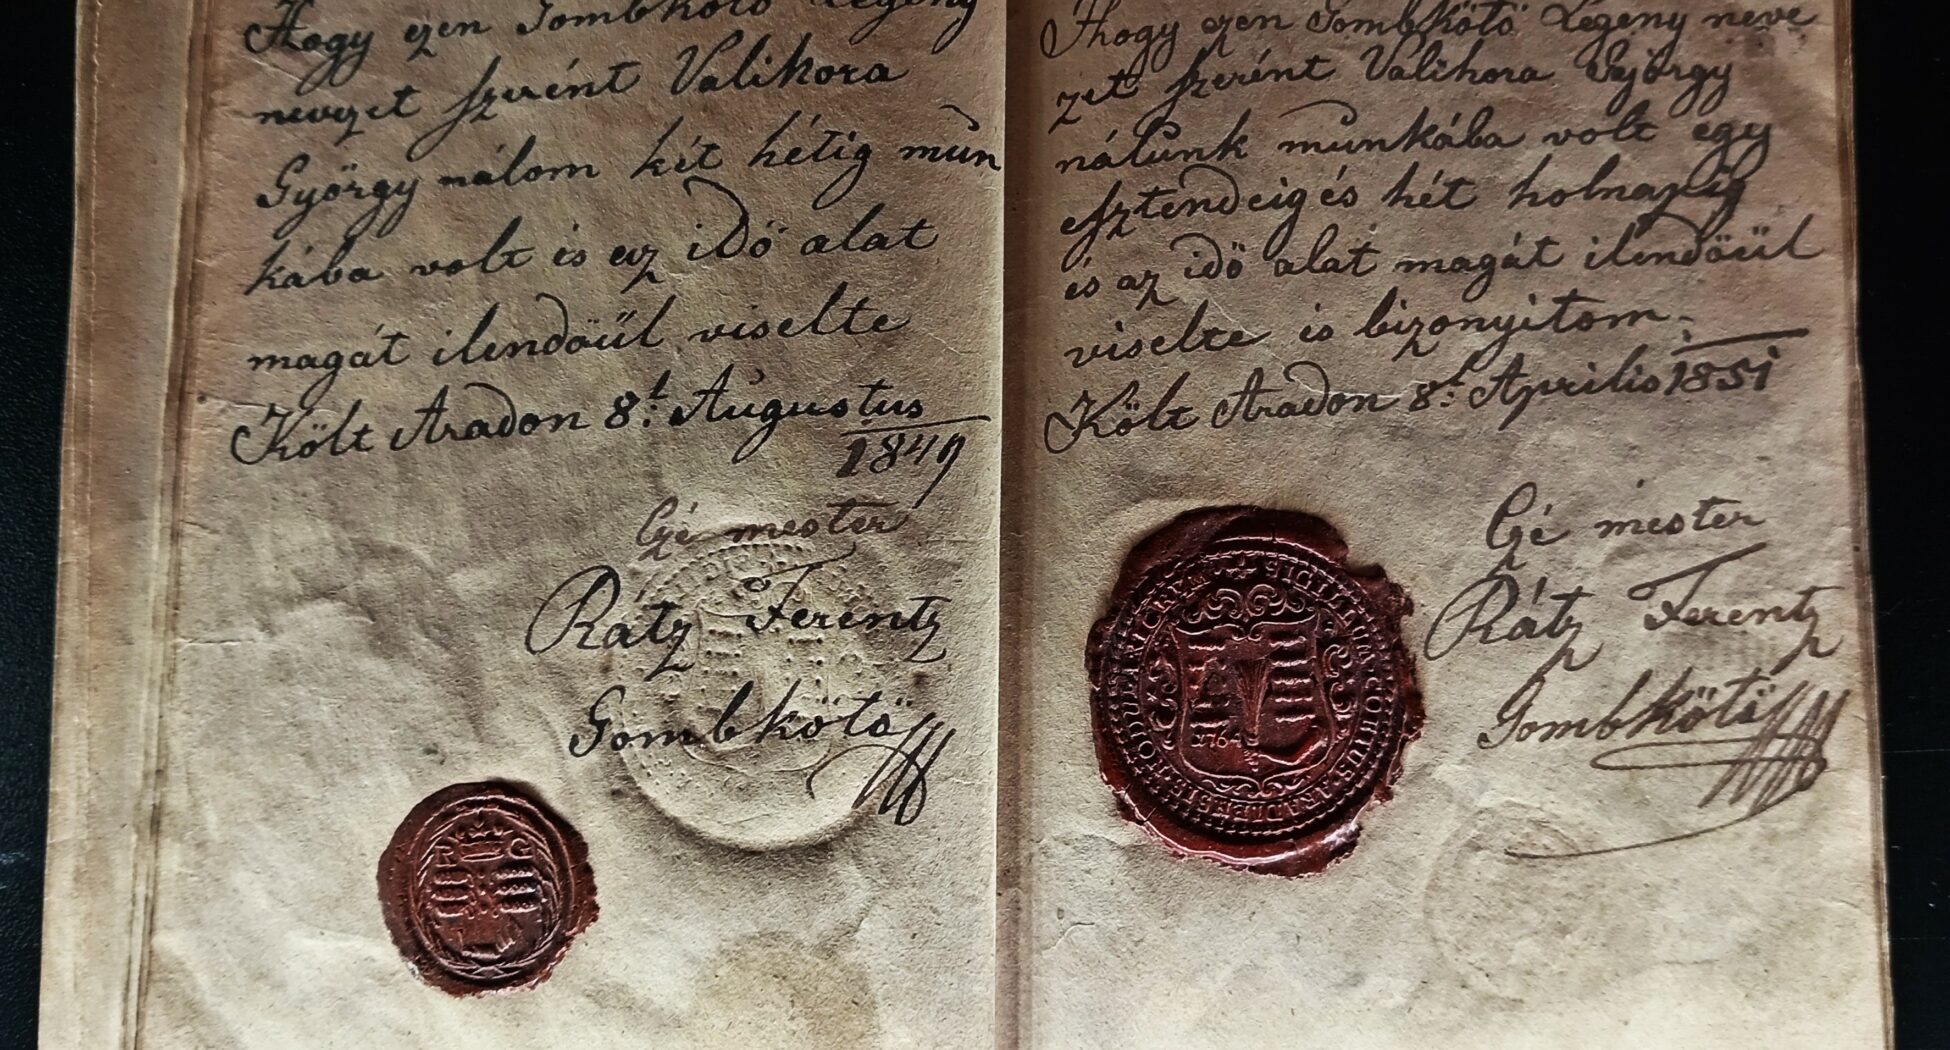 Hogy ezen Gombkötő Legény
nevezet szerént Valihora
György nálom két hétig mun
kába volt és ez idő alat
magát ilendőűl viselte
Költ Aradon 8t: Augustus
1849
Czé mester
Rátz Ferentz
Gombkötő
R G
Hogy ezen Gombkötő Legény neve
zet szerént Valihora György
nálunk munkába volt egy
esztendeig és hét holnapig
és az idő alat magát ilendőűl
viselte is bizonyitom.
Költ Aradon 8t: Aprilis 1851
Czé mester
Rátz Ferentz
Gombkötő
1764